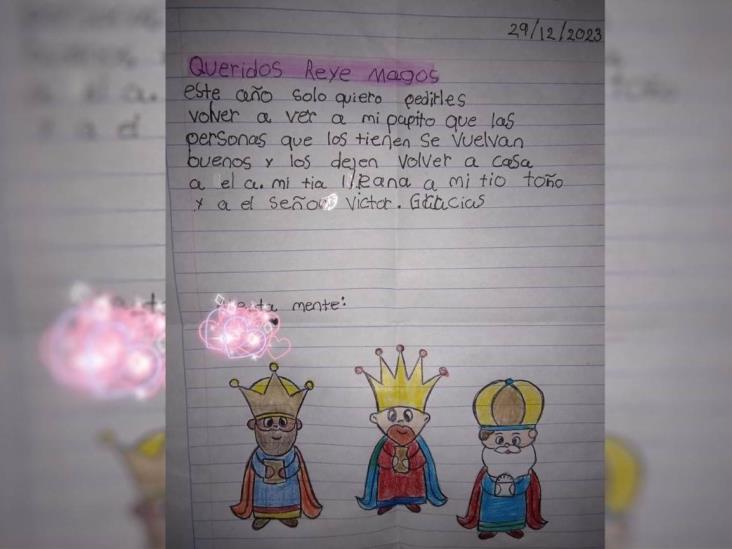 29/12/2023
Queridos Reye Magos
este año solo quiero pedirles
volver a ver a mi papito que las
personas que los tienen se vuelvan
buenos y los dejen volver a casa
a el a mi tia a mi tio toño
y a el Señor Victor. Gracias
mente: